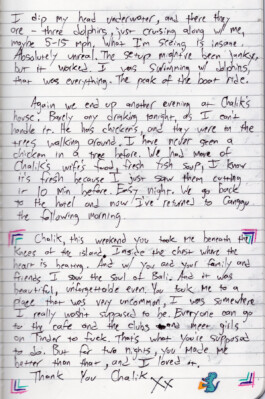 I dip my head underwater, and there they
are - three dolphins, just cruising along w/ me,
maybe 5-15 mph. What I'm seeing is insane.
Absolutely unreal. The setup might've been janky,
but it worked. I was swimming w/ dolphins,
that was everything. The peak of the boat ride.
Again we end up another evening at Chalik's
house. Barely any drinking tonight, as I can't
handle it. He has chickens, and they were in the
trees walking around. I have never seen a
chicken in a tree before. We had more of
Chalik's wife's food. Fresh fish soup, I know
it's fresh because I just saw them cutting
it 10 min before. Easy night. We go back
to the hotel and now I've returned to Canggu
the following morning.
Chalik, this weekend you took me beneath the
knees of the island. Inside the chest where the
heart is beating. And w/ you and your family and
friends I saw the soul of Bali. And it was
beautiful, unforgettable even. You took me to a
place that was very uncommon, I was somewhere
I really wasn't supposed to be. Everyone can go
to the cafe and the clubs and meet girls
on Tinder to fuck. That's what you're supposed
to do. But for two nights, you made me
better than that, and I loved it.
Thank You Chalik
XX